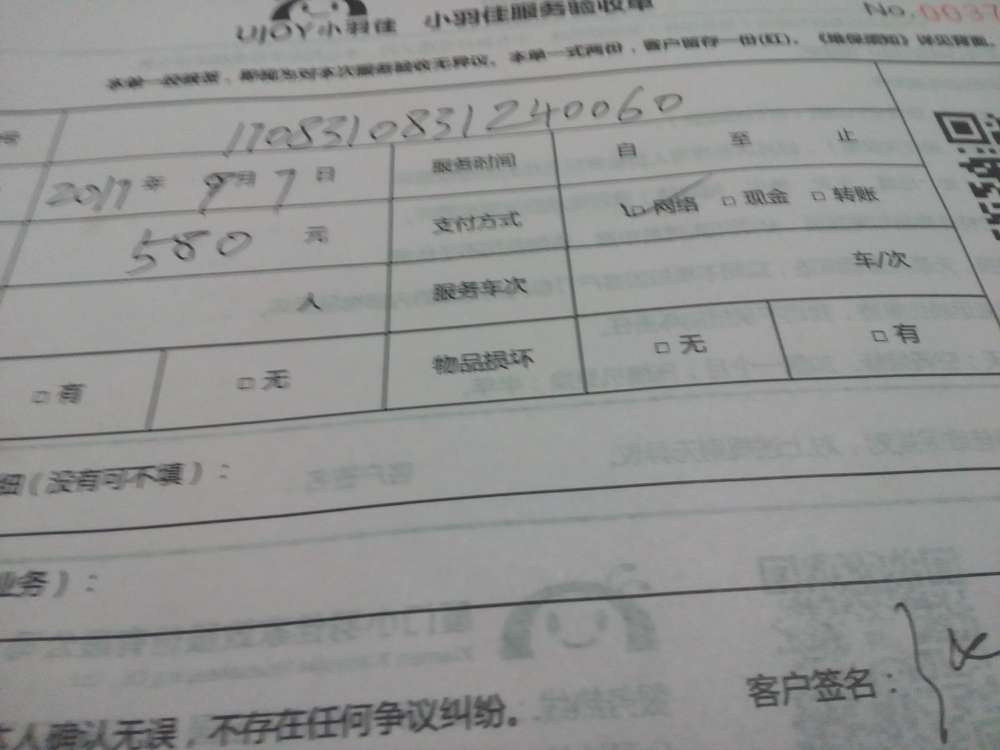 UJOY小羽佳 小羽佳服务验收单 No.0037
本单一经填签，即视为对本次服务验收无异议。本单一式两份，客户留存一份(红)。《维保须知》详见背面。
1708310831240060
2017年 9月 7日 服务时间 自 至 止
580 元 支付方式 □网络 □现金 □转账
人 服务车次 车/次
□有 □无 物品损坏 □无 □有
细（没有可不填）：
业务）：
本人确认无误，不存在任何争议纠纷。 客户签名：